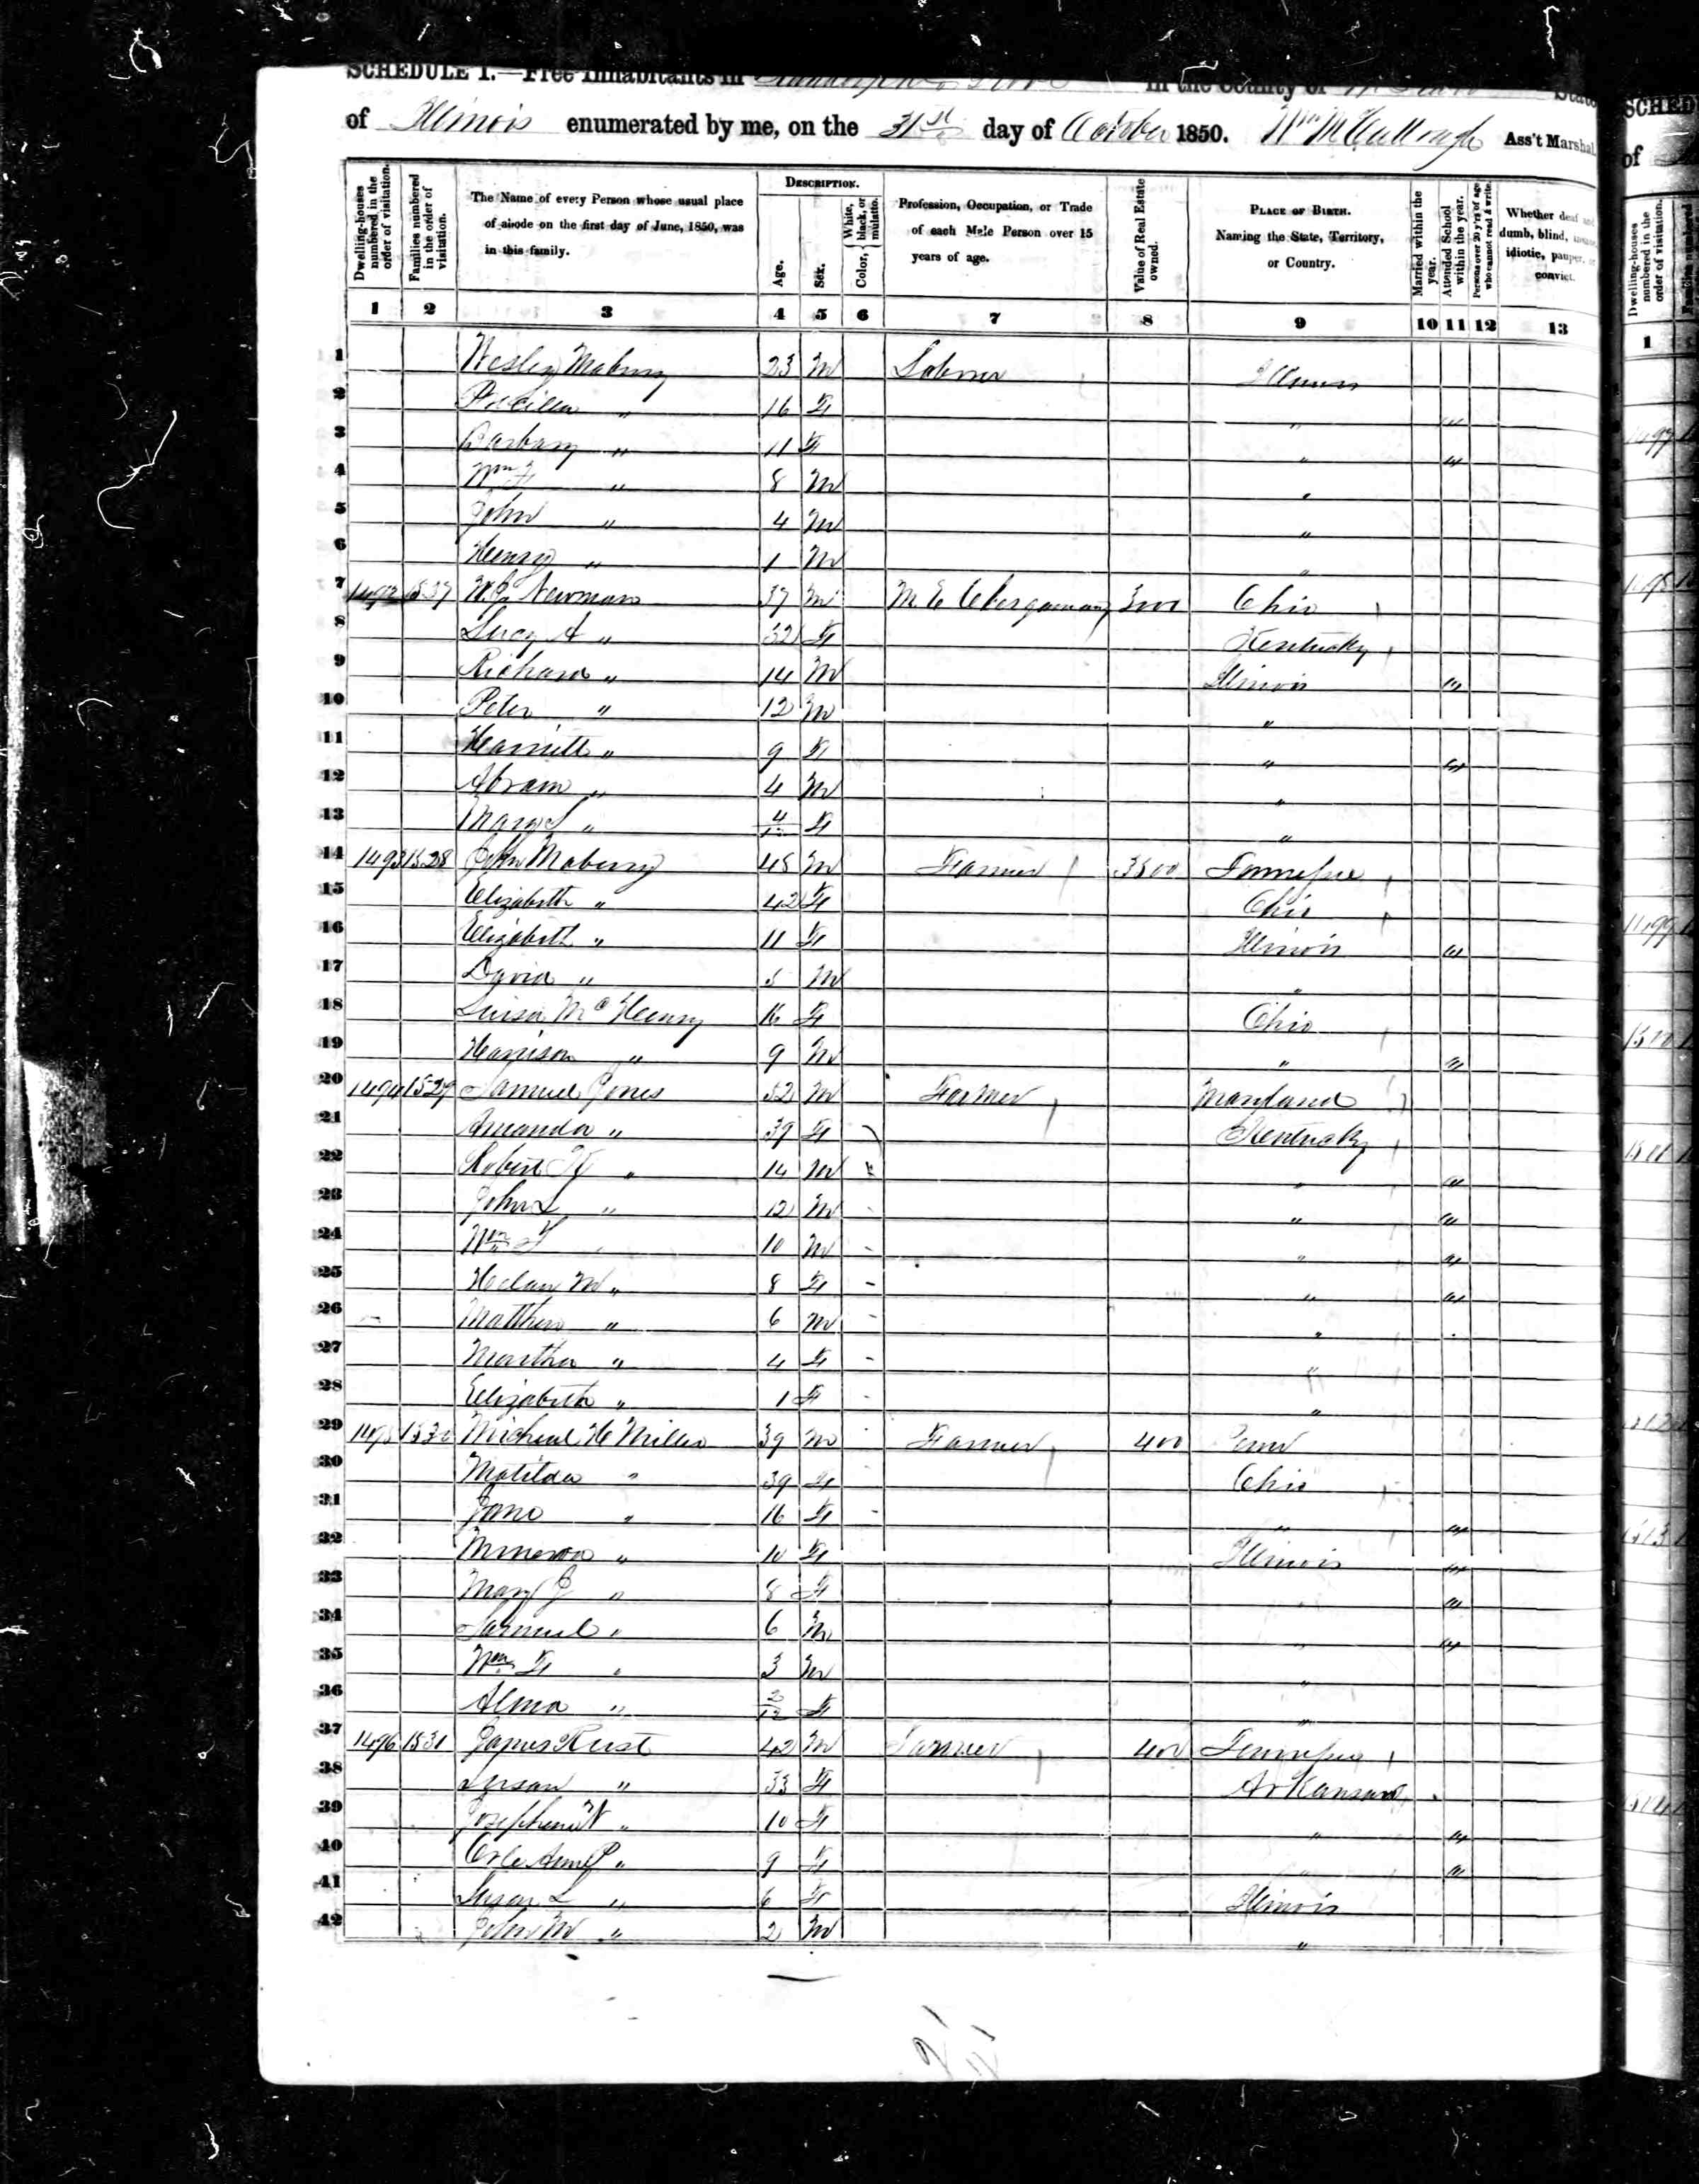 SCHEDULE I.—Free Inhabitants in in the County of State
of Illinois enumerated by me, on the 31st day of October 1850. Wm McCullough Ass't Marshal.
Dwelling-houses numbered in the order of visitation.
Families numbered in the order of visitation.
The Name of every Person whose usual place of abode on the first day of June, 1850, was in this family.
DESCRIPTION.
Age.
Sex.
Color, { White, black, or mulatto.
Profession, Occupation, or Trade of each Male Person over 15 years of age.
Value of Real Estate owned.
PLACE OF BIRTH. Naming the State, Territory, or Country.
Married within the year.
Attended School within the year.
Persons over 20 y'rs of age who cannot read & write.
Whether deaf and dumb, blind, insane, idiotic, pauper, or convict.
1 2 3 4 5 6 7 8 9 10 11 12 13
1 Wesley Mabury 23 M Illinois
2 " 16 F " "
3 Barbary " 11 F " "
4 Wm " 8 M "
5 John " 4 M "
6 Henry " 1 M "
7 Newman 37 M M E Clergyman Ohio
8 A " 32 F Kentucky
9 Richard " 14 M Illinois "
10 Peter " 12 M "
11 Harriett " 9 F " "
12 Abram " 4 M "
13 Mary " 4/12 F "
14 1493 1528 John Mabury 48 M Farmer Tennessee
15 Elizabeth " 42 F Ohio
16 Elizabeth " 11 F Illinois "
17 David " 5 M "
18 McHenry 16 F Ohio
19 Harrison " 9 M " "
20 1494 1529 Samuel Jones 52 M Farmer Maryland
21 Amanda " 39 F Kentucky
22 Robert " 14 M " "
23 John L " 12 M " "
24 Wm 10 M " "
25 Helan M " 8 F " "
26 Matthew " 6 M "
27 Martha " 4 F "
28 Elizabeth " 1 F "
29 1495 1530 Micheal H Miller 39 M Farmer 400 Penn
30 Matilda " 39 F Ohio
31 Jane " 16 F " "
32 Minerva " 10 F Illinois "
33 Mary J " 8 F " "
34 Samuel " 6 M " "
35 Wm F " 3 M "
36 Alma " 2/12 F "
37 1496 1531 James Rust 42 M Farmer 400 Tennessee
38 Susan " 33 F Arkansas
39 " 10 F " "
40 " 9 F " "
41 Susan L " 6 F Illinois
42 John M " 2 M "
SCHED
of
Dwelling-houses numbered in the order of visitation.
1